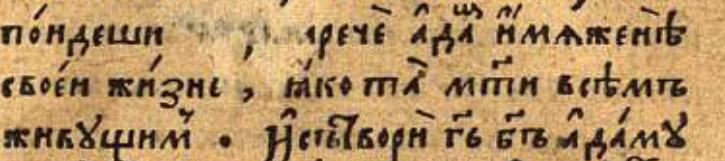 по́идеши наречѐ а҆да́м и҆́мѧ женѣ̀
своеи жи́зне, ꙗ҆́ко та̀ мт҃и всѣмъ
живꙋщим̾ · И҆ сътворѝ гь҃ бъ҃ а҆да́мꙋ